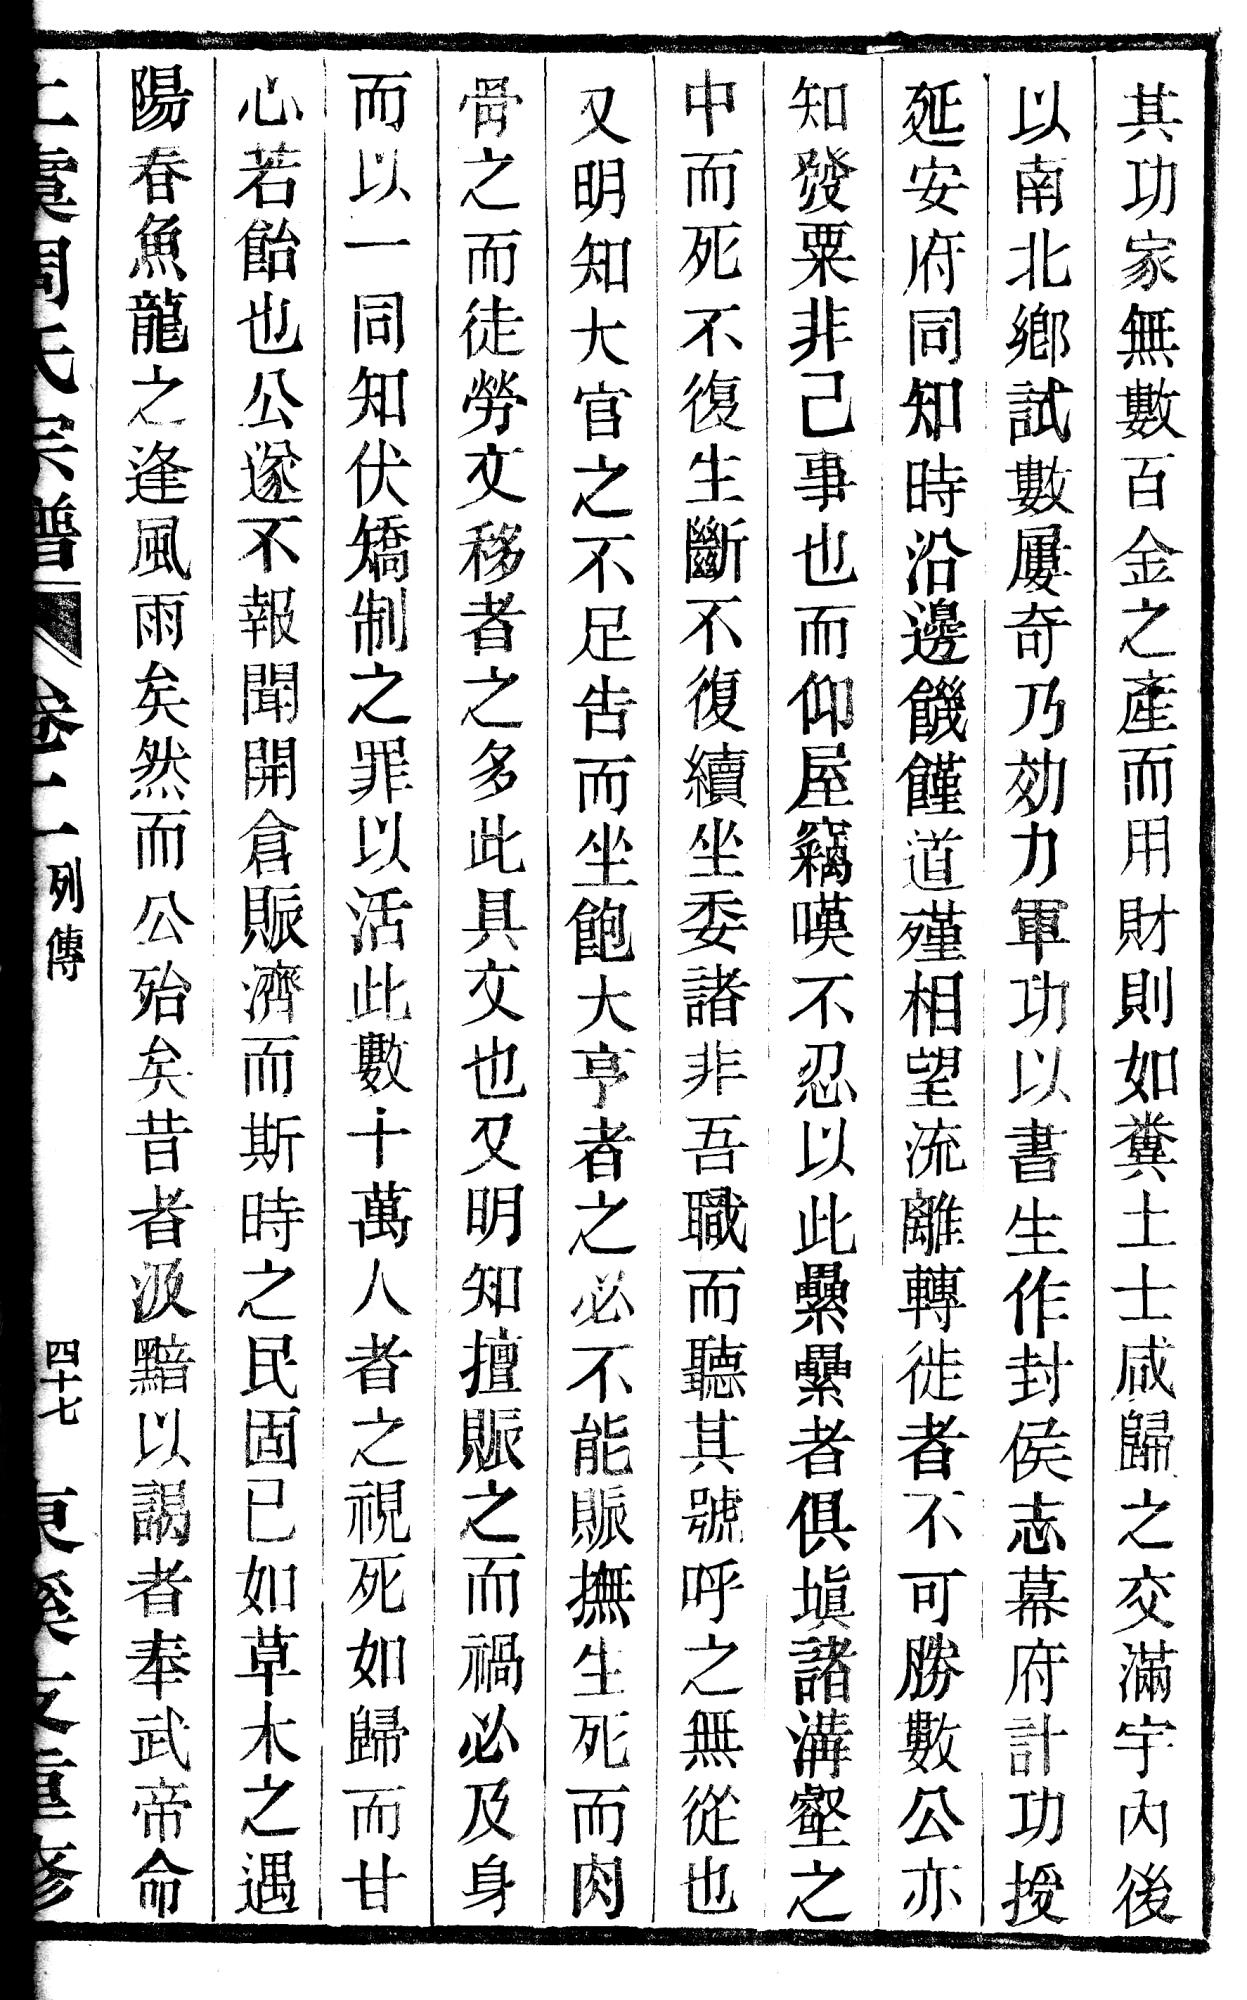 其功家無數百金之產而用財則如糞土士咸歸之交滿宇內後
以南北鄉試數屢奇乃効力軍功以書生作封侯志幕府計功授
延安府同知時沿邊饑饉道殣相望流離轉徙者不可勝數公亦
知發粟非己事也而仰屋竊嘆不忍以此纍纍者俱塡諸溝壑之
中而死不復生斷不復續坐委諸非吾職而聽其號呼之無從也
又明知大官之不足告而坐飽大亨者之必不能賑撫生死而肉
骨之而徒勞文移者之多此具文也又明知擅賑之而禍必及身
而以一同知伏矯制之罪以活此數十萬人者之視死如歸而甘
心若飴也公遂不報聞開倉賑濟而斯時之民固已如草木之遇
陽春魚龍之逢風雨矣然而公殆矣昔者汲黯以謁者奉武帝命
上虞周氏宗譜 卷十一 列傳 四十七 東溪支重修